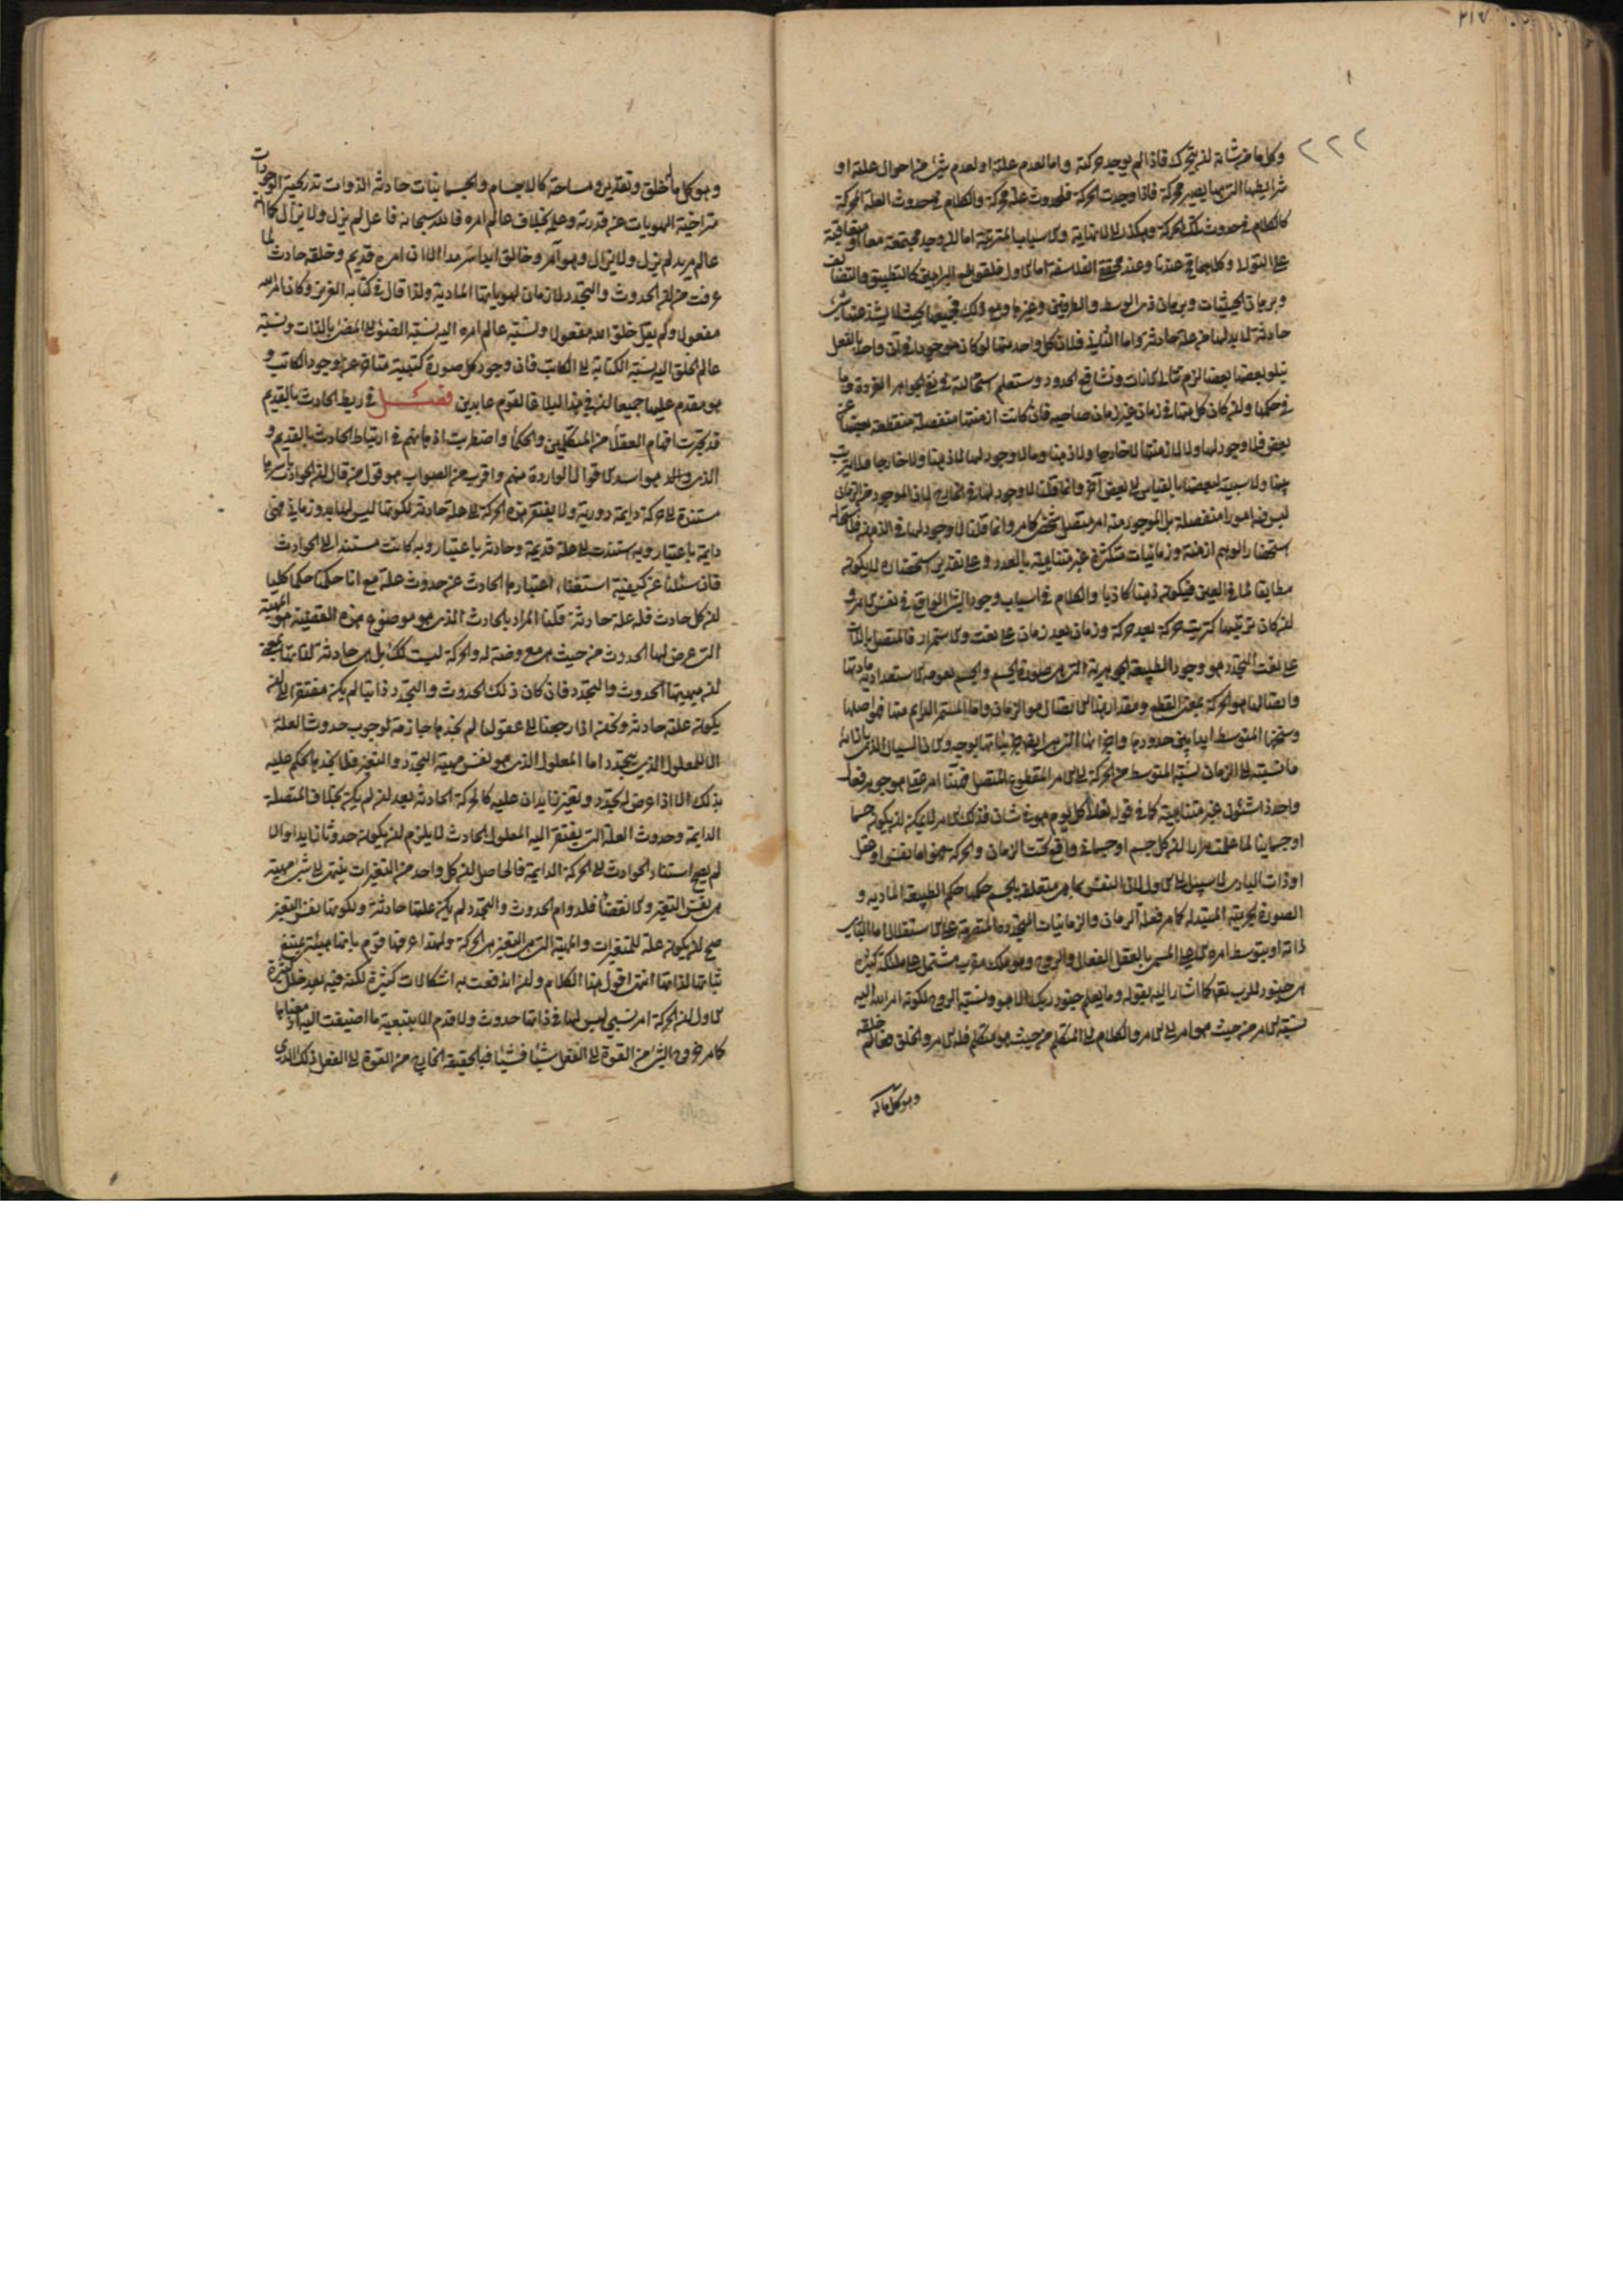 ٢١٧
٢٢٢
وكل ما من شانه ان يتحرك فاذا لم يوجد حركته واما لعدم علته او لعدم شئ من احوال علته او
شرايطها التى بها يصير محركة فاذا وجدت الحركة فلحدوث علة محركة والكلام فى حدوث العلة المحركة
كالكلام فى حدوث تلك الحركة وهكذا الى لا نهاية والاسباب المترتبة اما ان وجد مجتمعة معا او متعاقبة
على التوالى وكلاهما عندنا وعند محققى الفلاسفة اما الاول فلقواطع البراهين كالتطبيق والتضايف
وبرهان الحيثيات وبرهان ذى الوسط والطرفين وغيرها ومع ذلك فجميعها بحيث لا يشذ عنها شئ
حادثة لا بد لها من علة حادثة واما الثانى فلان كل واحد منها لو كان موجودا فى آن واحد بالفعل
يتلو بعضها بعضا لزم تتالى الآنات وتشافع الحدود وستعلم استحالته فى نفى الجواهر الفردة وما
فى حكمها وان كان كل منها فى زمان غير زمان صاحبه فان كانت ازمنتها منفصلة منقطعة بعضها عن
بعض فلا وجود لها ولا لازمنتها لا خارجا ولا ذهنا وما لا وجود لها لا ذهنا ولا خارجا فلا ترتب
بينها ولا سببية لبعضها بالقياس الى بعض آخر وانما قلنا لا وجود لها فى الخارج لان الموجود من الزمان
ليس فيه امورا منفصلة بل الموجود منه امر متصل شخصى كما مر وانما قلنا لا وجود لها فى الذهن فلاستحالة
استحضار الوهم ازمنة وزمانيات متكثرة غير متناهية بالعدد وعلى تقدير استحضاره لا يكون
مطابقا لما فى العين فيكون ذهنا كاذبا والكلام فى اسباب وجود الشئ الواقع فى نفس الامر و
ان كان ترتيبها كترتيب حركة بعد حركة وزمان بعد زمان على نعت الاستمرار فالمتصل بالذات
على نعت التجدد هو وجود الطبيعة الجوهرية التى هى صورة الجسم والجسم بعمومه الاستعدادية مادتها
واتصالها هو الحركة بمعنى القطع ومقدار هذا الاتصال هو الزمان واما المستمر الدايم منها فهو اصلها
وسنخها المتوسط ابدا بين حدودها واجزائها التى هى ايضا جزئياتها بوجه والآن السيال الذى بازائه
ما نسبته الى الزمان نسبة المتوسط من الحركة الى الامر المقطوع المتصل فهنا امر عقلى هو جوهر فعال
واحد ذا شئون غير متناهية كما فى قوله تعالى كل يوم هو فى شان فذلك الامر لا يمكن ان يكون جسما
او جسمانيا لما علمت مرارا ان كل جسم او جسمانى واقع تحت الزمان والحركة فهو اما نفس او عقل
او ذات البارى لا سبيل الى الاول لان النفس بما هى متعلقة بالجسم حكمها حكم الطبيعة المادية و
الصورة الجرمية المتبدلة كما مر فعلة الزمان والزمانيات المتجددة المتصرمة على الاستقلال اما البارى
ذاته او بتوسط امره الاعلى المسمى بالعقل الفعال والروح وهو ملك مقرب مشتمل على ملائكة كثيرة
هى جنود للرب تعالى كما اشار اليه بقوله وما يعلم جنود ربك الا هو ونسبة الروح لكونه امر الله اليه
نسبة الامر من حيث هو امر الى الامر والكلام الى المتكلم من حيث هو متكلم فله الامر والخلق فعالم خلقه
وهو كل ما له
وهو كل ما له خلق وتقدير ومساحة كالاجسام والجسمانيات حادثة الذوات تدريجية الوجودات
متراخية الهويات عن قدرته وعلمه بخلاف عالم امره فالله سبحانه فاعل لم يزل ولا يزال كما انه
عالم مريد لم يزل ولا يزال وهو آمر وخالق ابدا سرمدا الا ان امره قديم وخلقه حادث لما
عرفت من ان الحدوث والتجدد لازمان لهوياتها المادية ولذا قال فى كتابه العزيز وكان امر الله
مفعولا ولم يقل خلق الله مفعولا ونسبة عالم امره اليه نسبة الضوء الى المضئ بالذات ونسبة
عالم الخلق اليه نسبة الكتابة الى الكاتب فان وجود كل صورة كتبية متاخر عن وجود الكاتب و
هو مقدم عليها جميعا ان فى هذا لبلاغا لقوم عابدين فصل فى ربط الحادث بالقديم
قد تحيرت افهام العقلاء من المتكلمين والحكماء واضطربت اذهانهم فى ارتباط الحادث بالقديم و
الذى هو اسد الاقوال الواردة منهم واقرب من الصواب هو قول من قال ان الحوادث باسرها
مستندة الى حركة دايمة دورية ولا يفتقر هذه الحركة الى علة حادثة لكونها ليس لها بدو زمانى فهى
دايمة باعتبار وبه استندت الى علة قديمة وحادثة باعتبار وبه كانت مستند الى الحوادث
فان سئلنا عن كيفية استغناء اعتبارها الحادث عن حدوث علة مع انا حكمنا حكما كليا
ان كل حادث فله علة حادثة قلنا المراد بالحادث الذى هو موضوع هذه القضية هو الماهية
التى عرض لها الحدوث من حيث هى معروضة له والحركة ليست كذلك بل هى حادثة لذاتها بمعنى
ان ماهيتها الحدوث والتجدد فان كان ذلك الحدوث والتجدد ذاتيا لم يكن مفتقرا الى ان
يكون علته حادثة ونحن اذا رجعنا الى عقولنا لم نجدها جازمة لوجوب حدوث العلة
الا للمعلول الذى يتجدد اما المعلول الذى هو نفس مهية التجدد والتغير فلا نجدها حاكم عليه
بذلك الا اذا عرض له تجدد وتغير زايدان عليه كالحركة الحادثة بعد ان لم يكن بخلاف المتصلة
الدايمة وحدوث العلة التى يفتقر اليه المعلول الحادث لا يلزم ان يكون حدوثا زايدا والا
لم يصح استناد الحوادث الى الحركة الدايمة فالحاصل ان كل واحد من التغيرات ينتهى الى شئ مهيته
هى نفس التغير والانقضاء فلدوام الحدوث والتجدد لم يكن علتها حادثة ولكونها نفس التغير
صح ان يكون علة للمتغيرات والمهية التى هى التغير هى الحركة ولهذا عرفها قوم بانها هيئة يمتنع
ثباتها لذاتها انتهى اقول هذا الكلام وان اندفعت به اشكالات كثيرة لكن فيه بعد خلل كثيرة
الاول ان الحركة امر نسبى ليس لها فى ذاتها حدوث ولا قدم الا بتبعية ما اضيفت اليه اذ معناها
كما مر خروج الشئ من القوة الى الفعل شيئا فشيئا فبالحقيقة الخارج من القوة الى الفعل ذلك الذى